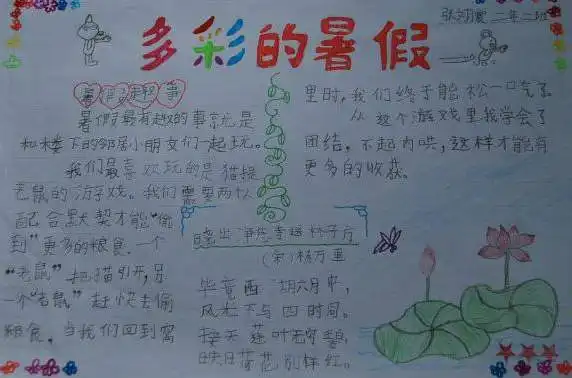 多彩的暑假
二年二班
暑假趣事
暑假最有趣的事就是
和楼下的邻居小朋友们一起玩。
我们最喜欢玩的是猫捉
老鼠的游戏。我们需要两个人
配合默契才能“偷
到”更多的粮食。一个
“老鼠”把猫引开,另
一个“老鼠”赶快去偷
粮食。当我们回到窝
里时,我们终于能松一口气了。
从这个游戏里我学会了
团结,不起内哄,这样才能有
更多的收获。
晓出净慈寺送林子方
(宋)杨万里
毕竟西湖六月中,
风光不与四时间。
接天莲叶无穷碧,
映日荷花别样红。